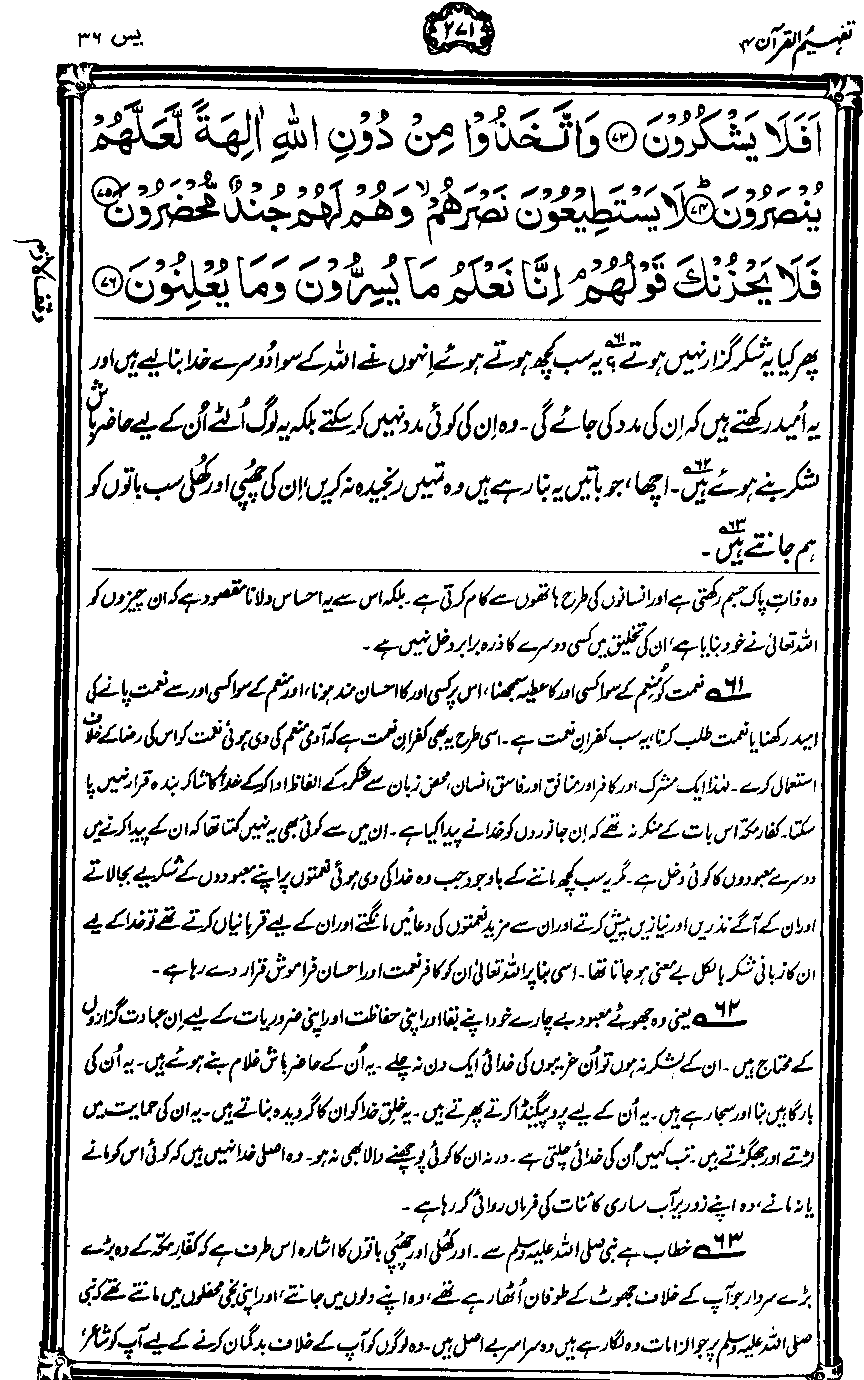 تفہیم القرآن ۴
۲۷۱
یٰس ۳۶
اَفَلَا يَشْكُرُوْنَ ﴿۷۳﴾ وَاتَّخَذُوْا مِنْ دُوْنِ اللهِ اٰلِهَةً لَّعَلَّهُمْ
يُنْصَرُوْنَ ﴿۷۴﴾ لَا يَسْتَطِيْعُوْنَ نَصْرَهُمْ ۙ وَهُمْ لَهُمْ جُنْدٌ مُّحْضَرُوْنَ ﴿۷۵﴾
فَلَا يَحْزُنْكَ قَوْلُهُمْ ۘ اِنَّا نَعْلَمُ مَا يُسِرُّوْنَ وَمَا يُعْلِنُوْنَ ﴿۷۶﴾
وقف لازم
پھر کیا یہ شکر گزار نہیں ہوتے؟۶۱ یہ سب کچھ ہوتے ہوئے اِنہوں نے اللہ کے سوا دُوسرے خدا بنا لیے ہیں اور
یہ اُمید رکھتے ہیں کہ اِن کی مدد کی جائے گی۔ وہ اِن کی کوئی مدد نہیں کر سکتے بلکہ یہ لوگ اُلٹے اُن کے لیے حاضر باش
لشکر بنے ہوئے ہیں۶۲۔ اچھا، جو باتیں یہ بنا رہے ہیں وہ تمہیں رنجیدہ نہ کریں، اِن کی چھپی اور کھُلی سب باتوں کو
ہم جانتے ہیں۶۳۔
وہ ذاتِ پاک جسم رکھتی ہے اور انسانوں کی طرح ہاتھوں سے کام کرتی ہے۔ بلکہ اس سے یہ احساس دلانا مقصود ہے کہ ان چیزوں کو
اللہ تعالیٰ نے خود بنایا ہے، ان کی تخلیق میں کسی دوسرے کا ذرہ برابر دخل نہیں ہے۔
۶۱ نعمت کو مُنعِم کے سوا کسی اور کا عطیہ سمجھنا، اس پر کسی اور کا احسان مند ہونا، اور منعم کے سوا کسی اور سے نعمت پانے کی
امید رکھنا یا نعمت طلب کرنا، یہ سب کفرانِ نعمت ہے۔ اسی طرح یہ بھی کفرانِ نعمت ہے کہ آدمی منعم کی دی ہوئی نعمت کو اس کی رضا کے خلاف
استعمال کرے۔ لہٰذا ایک مشرک اور کافر اور منافق اور فاسق انسان محض زبان سے شکر کے الفاظ ادا کر کے خدا کا شاکر بندہ قرار نہیں پا
سکتا۔ کفارِ مکہ اس بات کے منکر نہ تھے کہ اِن جانوروں کو خدا نے پیدا کیا ہے۔ ان میں سے کوئی بھی یہ نہیں کہتا تھا کہ ان کے پیدا کرنے میں
دوسرے معبودوں کا کوئی دخل ہے۔ مگر یہ سب کچھ ماننے کے باوجود جب وہ خدا کی دی ہوئی نعمتوں پر اپنے معبودوں کے شکریے بجا لاتے
اور ان کے آگے نذریں اور نیازیں پیش کرتے اور ان سے مزید نعمتوں کی دعائیں مانگتے اور ان کے لیے قربانیاں کرتے تھے تو خدا کے لیے
ان کا زبانی شکر بالکل بے معنی ہو جاتا تھا۔ اسی بنا پر اللہ تعالیٰ ان کو کافر نعمت اور احسان فراموش قرار دے رہا ہے۔
۶۲ یعنی وہ جھوٹے معبود بے چارے خود اپنے بقا اور اپنی حفاظت اور اپنی ضروریات کے لیے اِن عبادت گزاروں
کے محتاج ہیں۔ ان کے لشکر نہ ہوں تو اُن غریبوں کی خدائی ایک دن نہ چلے۔ یہ اُن کے حاضر باش غلام بنے ہوئے ہیں۔ یہ اُن کی
بارگاہیں بنا اور سجا رہے ہیں۔ یہ اُن کے لیے پروپیگنڈا کرتے پھرتے ہیں۔ یہ خلقِ خدا کو ان کا گرویدہ بناتے ہیں۔ یہ ان کی حمایت میں
لڑتے اور جھگڑتے ہیں۔ تب کہیں اُن کی خدائی چلتی ہے۔ ورنہ ان کا کوئی پوچھنے والا بھی نہ ہو۔ وہ اصلی خدا نہیں ہیں کہ کوئی اس کو مانے
یا نہ مانے، وہ اپنے زور پر آپ ساری کائنات کی فرماں روائی کر رہا ہے۔
۶۳ خطاب ہے نبی صلی اللہ علیہ وسلم سے۔ اور کھُلی اور چھپی باتوں کا اشارہ اس طرف ہے کہ کفارِ مکہ کے وہ بڑے
بڑے سردار جو آپ کے خلاف جھوٹ کے طوفان اُٹھا رہے تھے، وہ اپنے دلوں میں جانتے، اور اپنی نجی محفلوں میں مانتے تھے کہ نبی
صلی اللہ علیہ وسلم پر جو الزامات وہ لگا رہے ہیں وہ سراسر بے اصل ہیں۔ وہ لوگوں کو آپ کے خلاف بدگمان کرنے کے لیے آپ کو شاعر،